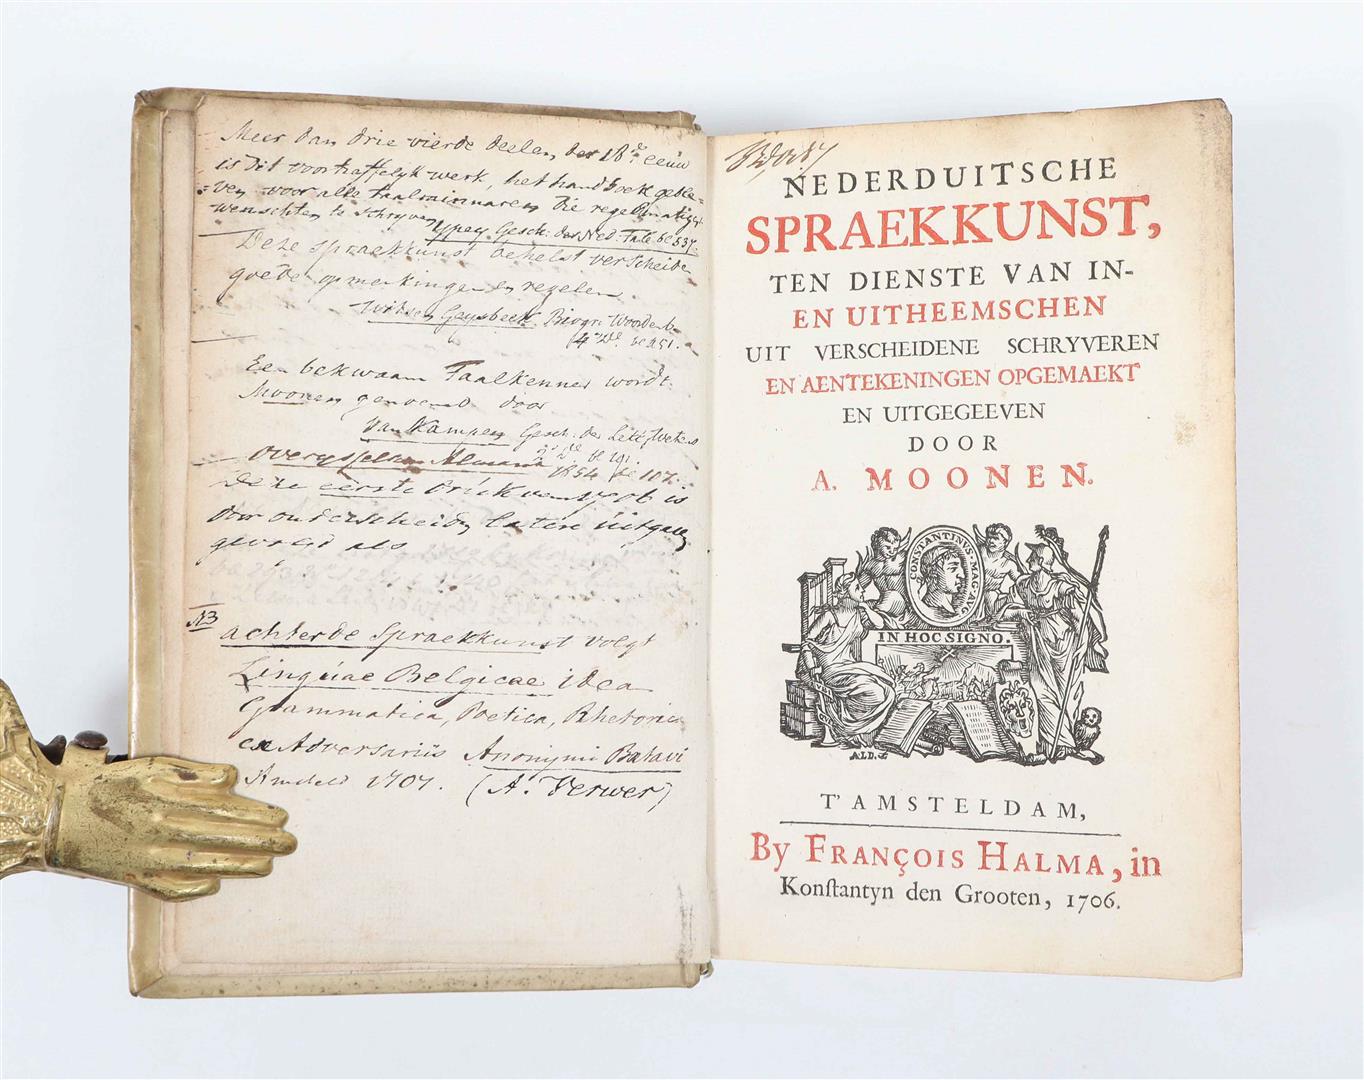 Meer dan drie vierde deelen der 18de eeuw
is dit voortreffelyk werk, het handboek geble-
ven voor alle taalminnaren die regelmatig
wenschten te schryven
Ypey Gesch: der Ned: Tale bl 537.
Deze spraekkunst behelst verscheide
goede opmerkingen en regelen
Witsen Geysbeek Biogr: Woordenb.
4e Dl. bl 451.
Een bekwaam Taalkenner wordt
Moonen genoemd door
Van Kampen Gesch: der Lett.
2e Dl. bl 191
Overysselsche Almanak 1854 bl 107.
Deze eerste druk van 1706 is
door onderscheiden latere uitgaven
gevolgd als
NB
achter de Spraekkunst volgt
Linguae Belgicae idea
Grammatica, Poetica, Rhetorica
ex Adversariis Anonymi Batavi
Amsteld 1707. (A. Verwer)
NEDERDUITSCHE
SPRAEKKUNST,
TEN DIENSTE VAN IN-
EN UITHEEMSCHEN
UIT VERSCHEIDENE SCHRYVEREN
EN AENTEKENINGEN OPGEMAEKT
EN UITGEGEEVEN
DOOR
A. MOONEN.
CONSTANTINUS MAG. AUG.
IN HOC SIGNO.
ALD.
T'AMSTELDAM,
By FRANÇOIS HALMA, in
Konſtantyn den Grooten, 1706.